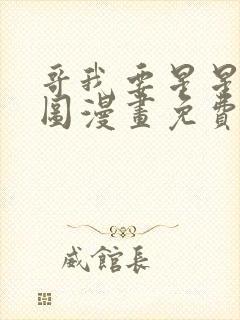 哥我要星星
圖漫畫免費
威館長